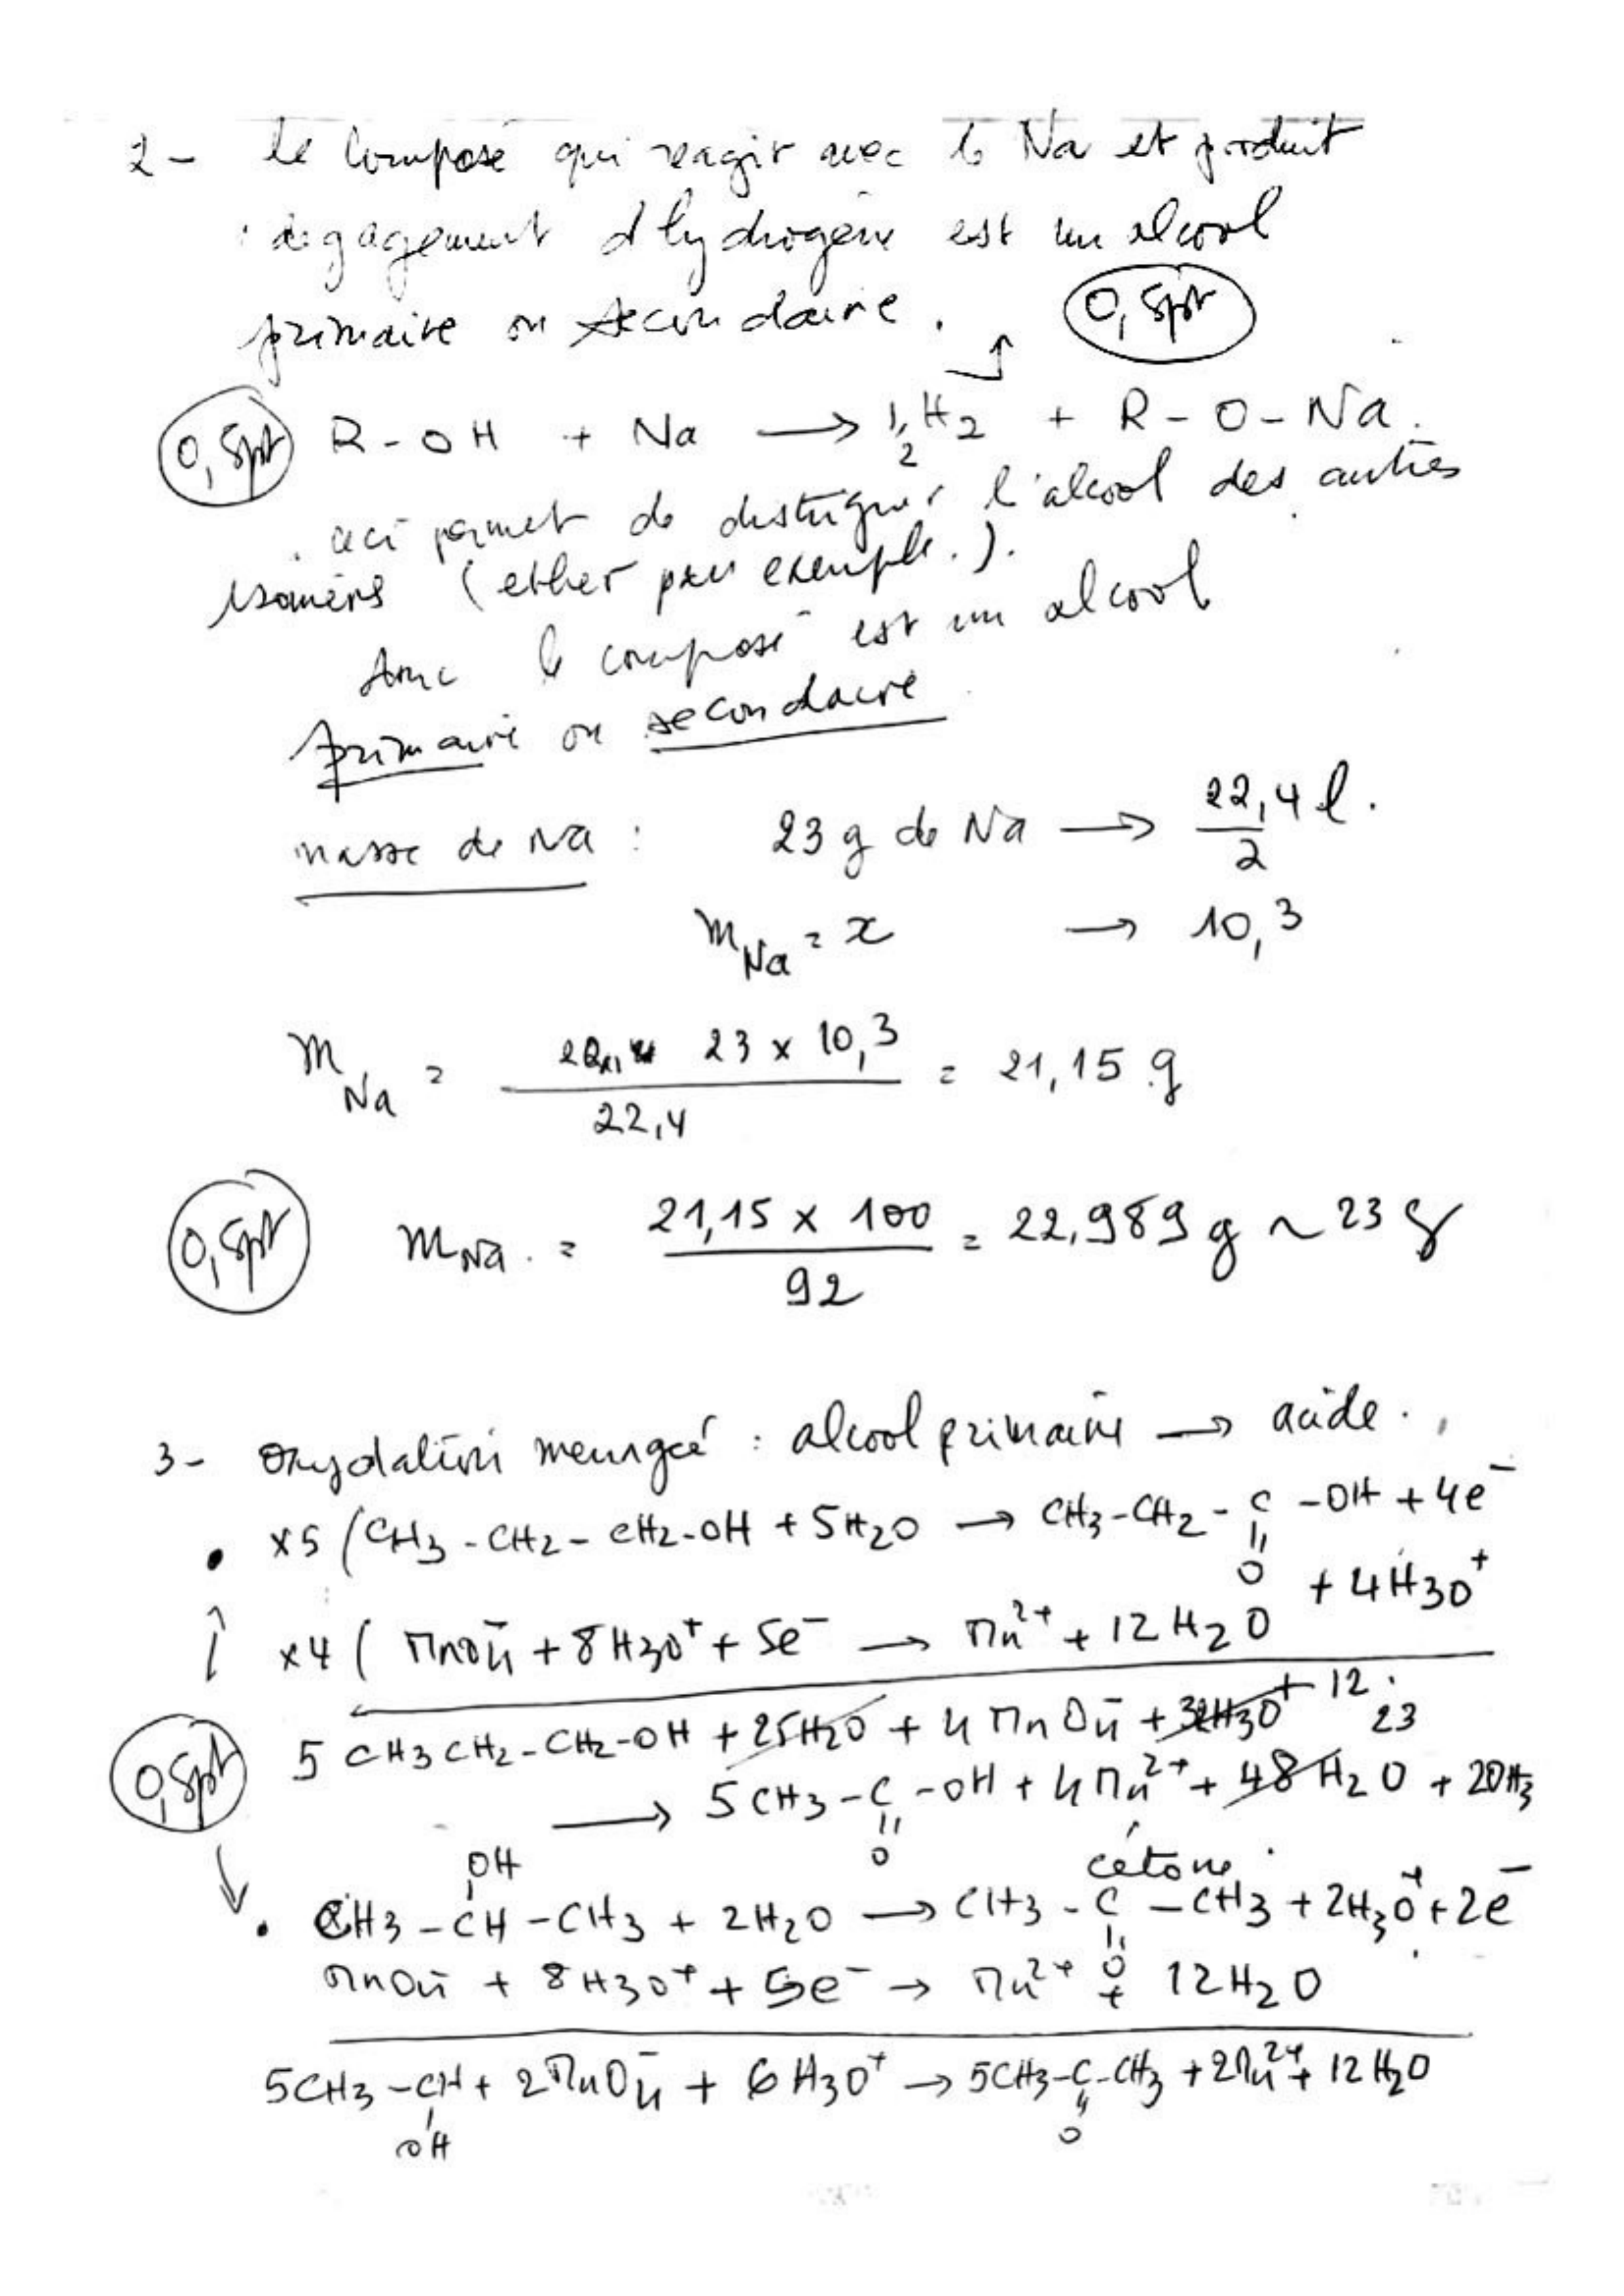 2- le composé qui reagir avec le Na et produit
degagement d'hydrogene est un alcool
primaire ou secondaire.
0,5pt
0,5pt R-OH + Na → 1/2 H2 + R-O-Na.
ceci permet de distinguer l'alcool des autres
isomers (ether par exemple.).
donc le composé est un alcool
primaire ou secondaire
masse de Na : 23 g de Na → 22,4 l. / 2
mNa = x → 10,3
mNa = 23 x 10,3 / 22,4 = 21,15 g
0,5pt mNa. = 21,15 x 100 / 92 = 22,989 g ~ 23 g
3- Oxydation menagée : alcool primaire → acide.
• x5 (CH3-CH2-CH2-OH + 5H2O → CH3-CH2-C-OH + 4e-
O + 4H3O+
x4 ( MnO4- + 8H3O+ + 5e- → Mn2+ + 12H2O
5 CH3CH2-CH2-OH + 25H2O + 4MnO4- + 32H3O+ 12.
23
0,5pt → 5CH3-C-OH + 4Mn2+ + 48H2O + 20H3
O
OH cétone
• CH3-CH-CH3 + 2H2O → CH3-C-CH3 + 2H3O+ + 2e-
O
MnO4- + 8H3O+ + 5e- → Mn2+ + 12H2O
5CH3-CH + 2MnO4- + 6H3O+ → 5CH3-C-CH3 + 2Mn2+ + 12H2O
OH O